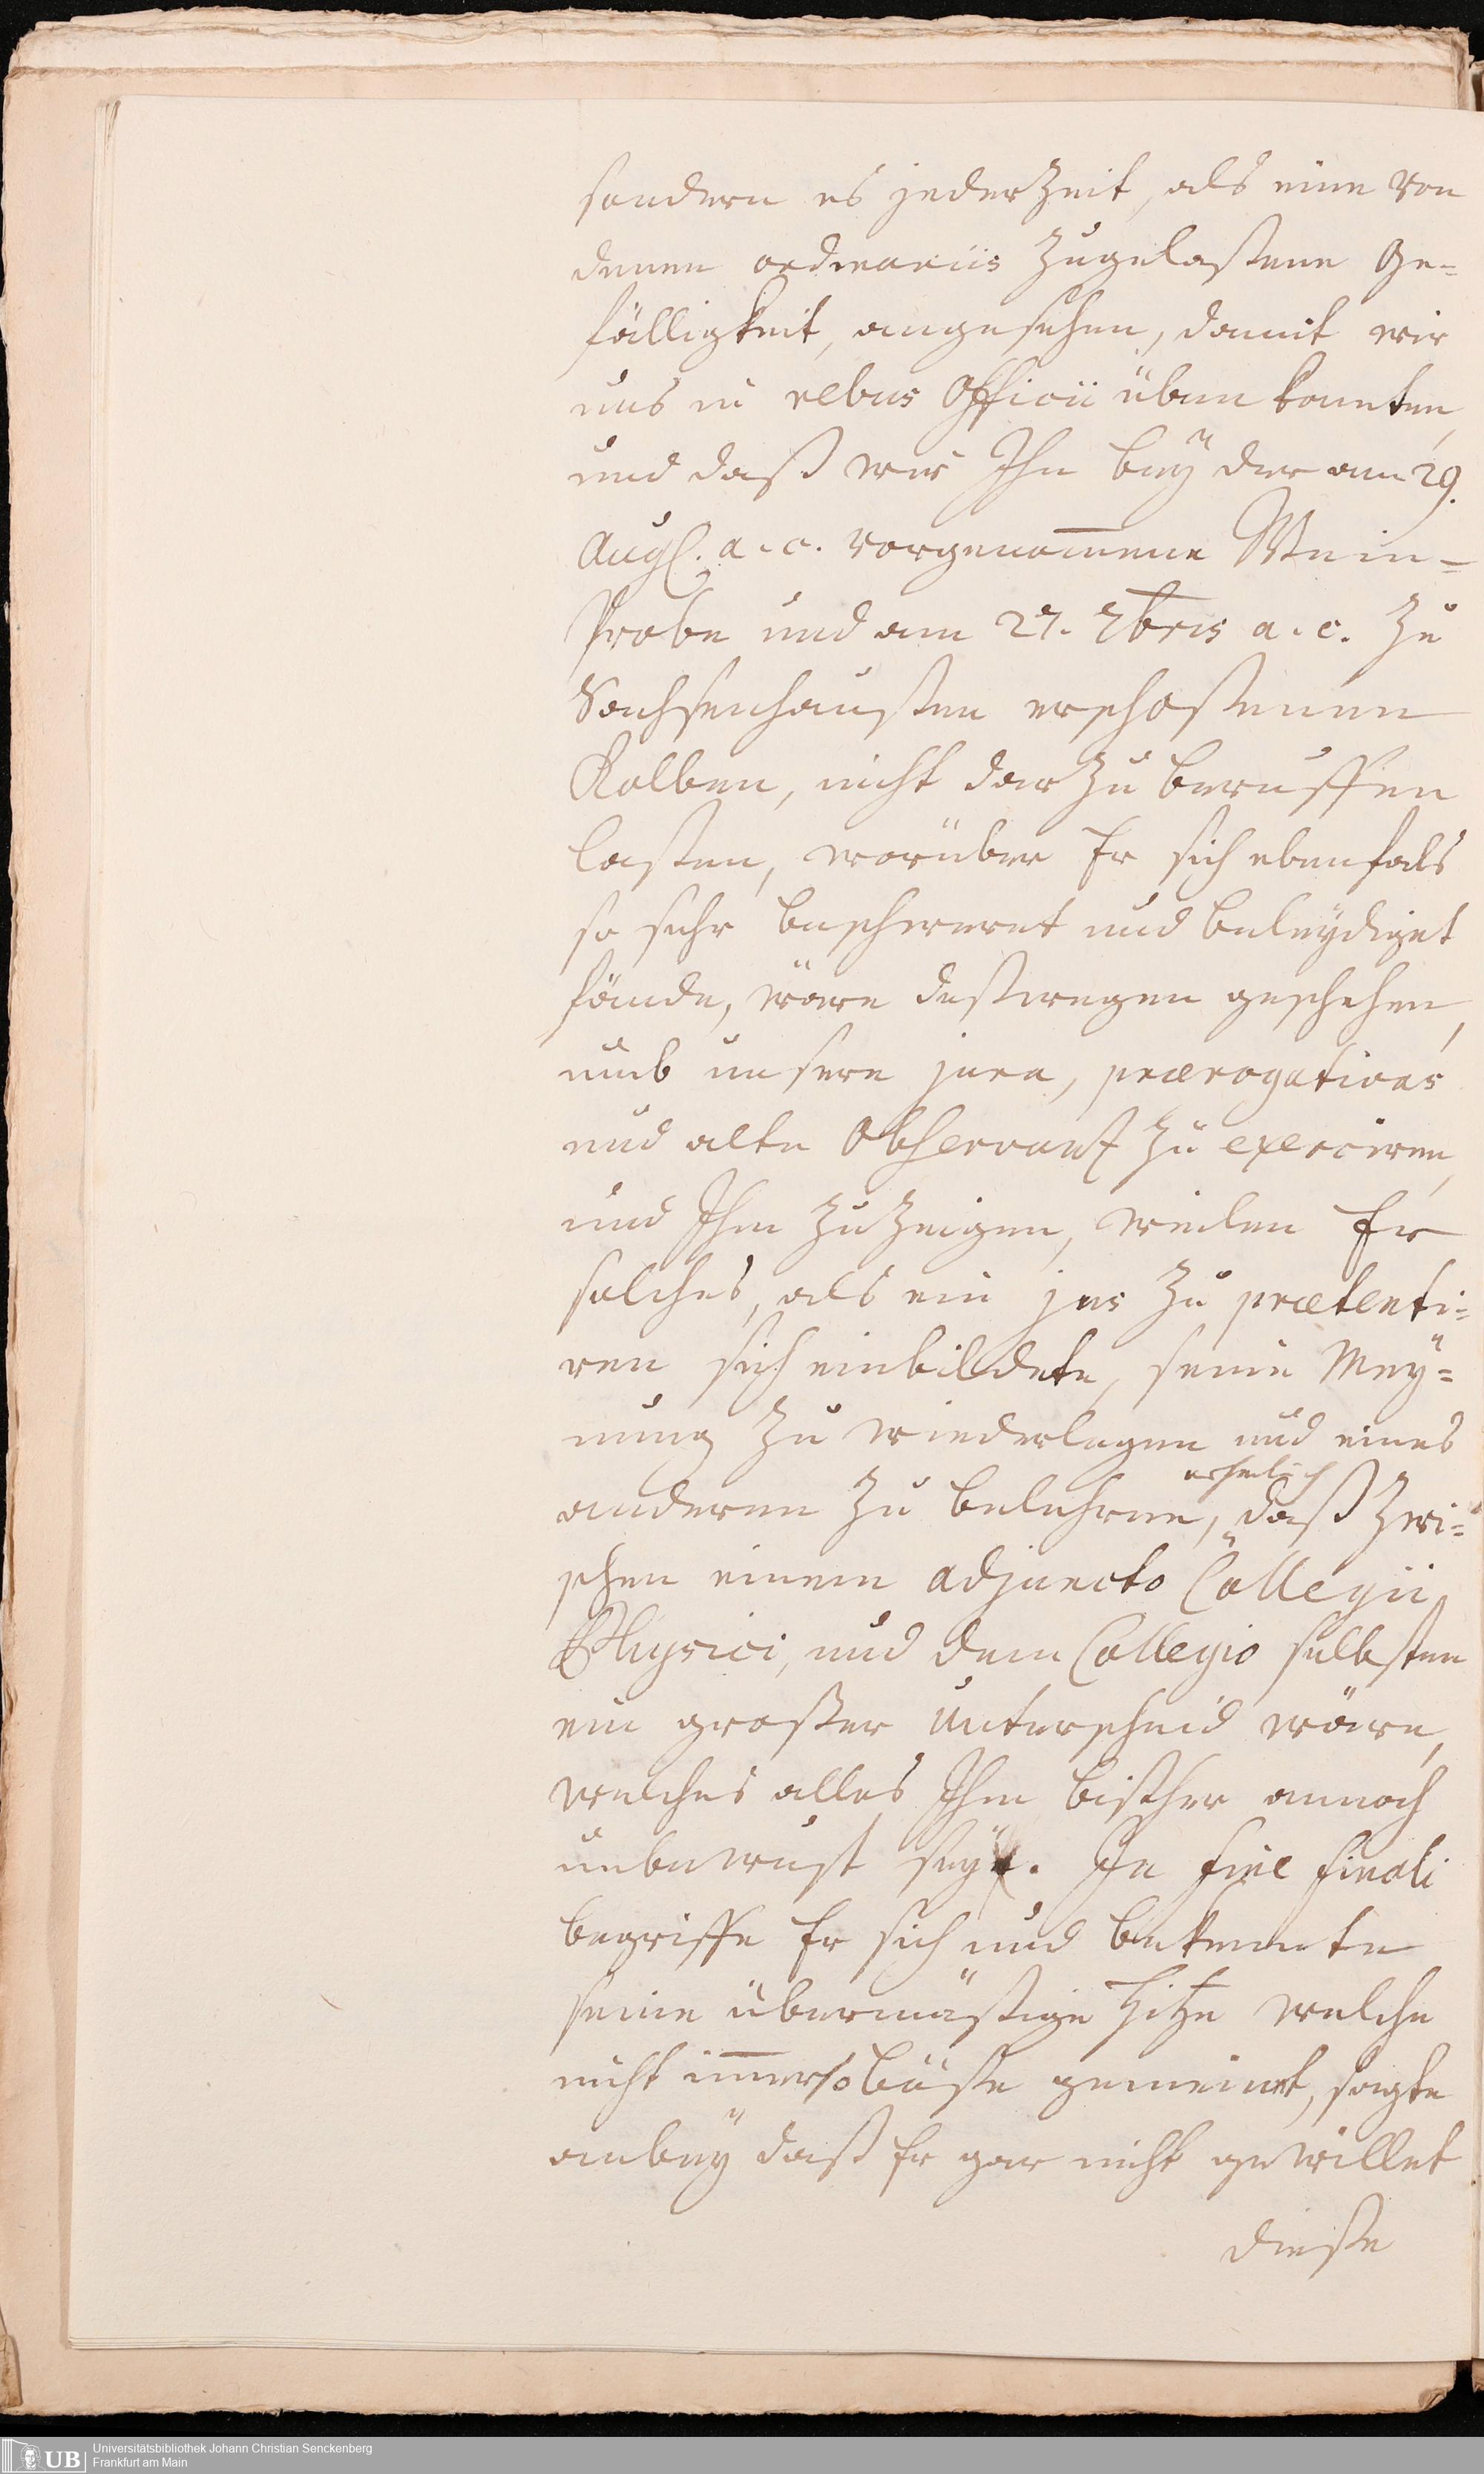 sondern es jederzeit, als eine von
denen ordinariis zugelaßene Ge-
fälligkeit, angesehen, damit wir
uns in rebus Officii üben konnten,
und daß wir Ihn beÿ der am 29.
Augs. a. c. vorgenom̅ene Wein-
Probe und am 27. 7bris a. c. zu
Sachsenhaußen erschoßenen
Kolben, nicht darzu beruffen
laßen, worüber Er sich ebenfals
so sehr beschweret und beleydiget
fände, wäre deßwegen geschehen,
umb unsere jura, prærogativas
und alte Observanz zu exerciren,
und Ihm zu zeigen, weilen Er
solches, als ein jus zu prætenti-
ren sich einbildete, seine Meÿ-
nung zu wiederlegen und eines
anderen zu belehren, daß zwi-
schen einem adjuncto Collegii
Physici, und dem Collegio selbsten
ein großer Unterscheid wäre,
welches alles Ihm bißher annoch
unbewust seÿ. In fine finali
begriffe Er sich und bekennte
seine übermäßige Hitze welche
nicht im̅er so böße gemeinet, sagte
anbeÿ daß Er gar nicht gewillet
dieße
Universitätsbibliothek Johann Christian Senckenberg
Frankfurt am Main
UB